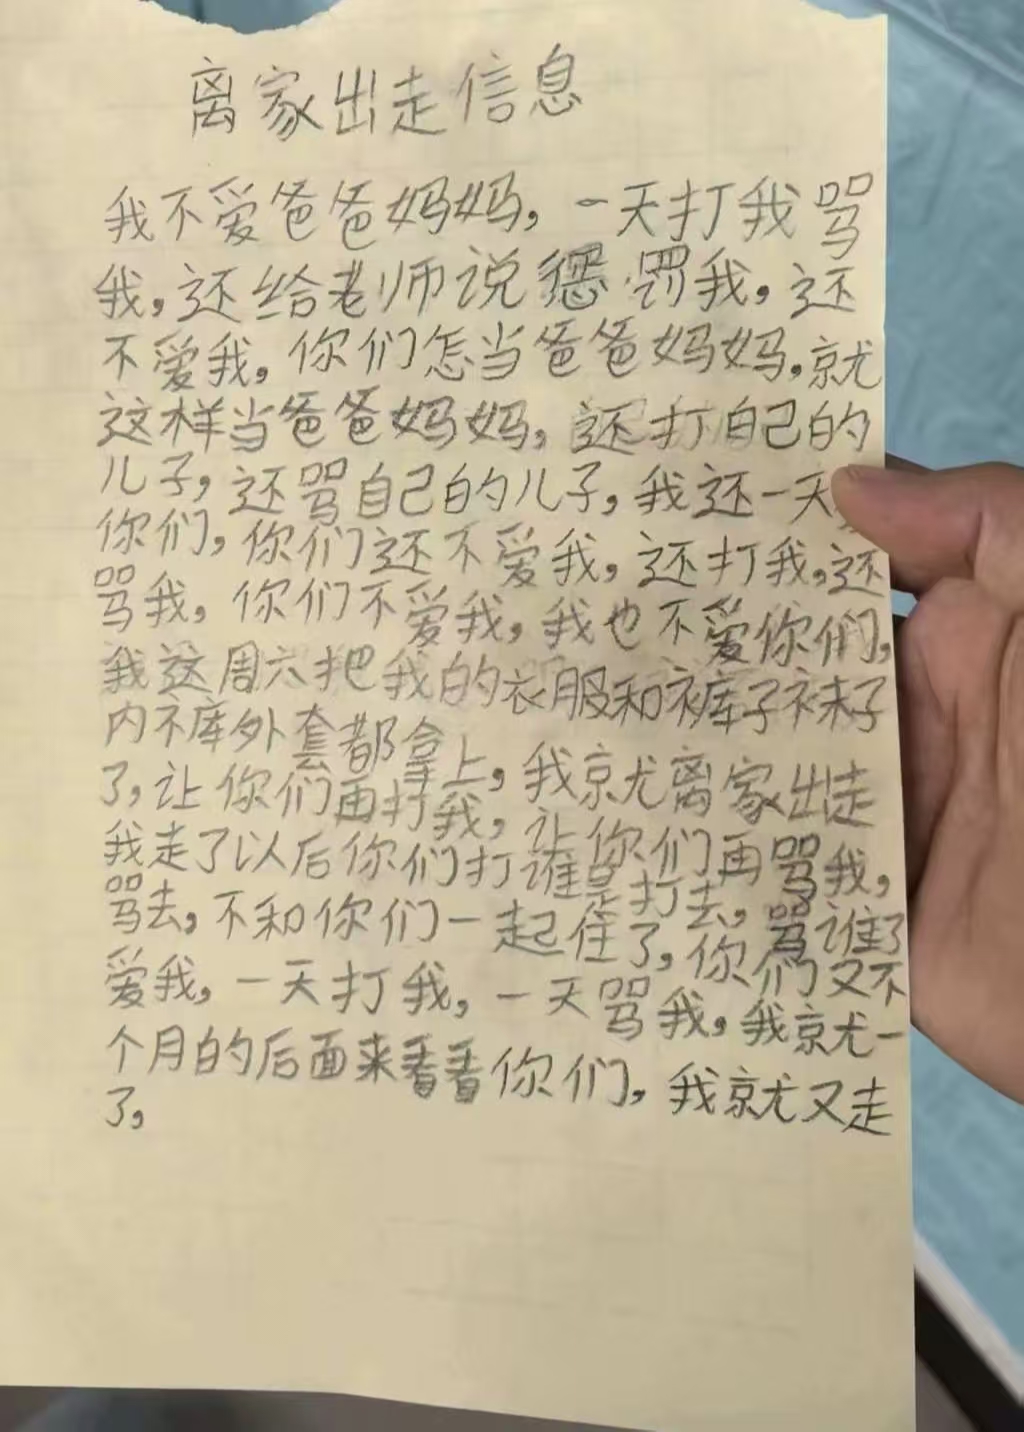 离家出走信息
我不爱爸爸妈妈，一天打我骂
我，还给老师说惩罚我，还
不爱我，你们怎当爸爸妈妈，就
这样当爸爸妈妈，还打自己的
儿子，还骂自己的儿子，我还一天
你们，你们还不爱我，还打我，还
骂我，你们不爱我，我也不爱你们，
我这周六把我的衣服和裤子袜子
内裤外套都拿上，我就离家出走
了，让你们再打我，让你们再骂我，
我走了以后你们打谁是打去，骂谁了
骂去，不和你们一起住了，你们又不
爱我，一天打我，一天骂我，我就一
个月的后面来看看你们，我就又走
了，